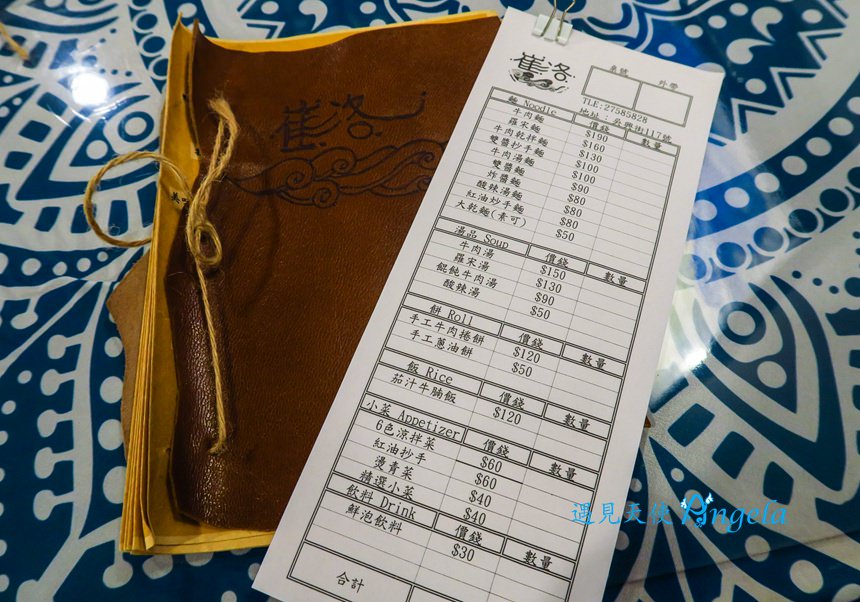 崔洛
美味
崔洛
桌號 外帶
TLE:27585828
地址:吳興街117號
麵 Noodle 價錢 數量
牛肉麵 $190
羅宋麵 $160
牛肉乾拌麵 $130
雙醬抄手麵 $100
牛肉湯麵 $100
雙醬麵 $90
炸醬麵 $80
酸辣湯麵 $80
紅油炒手麵 $80
大乾麵(素可) $50
湯品 Soup 價錢 數量
牛肉湯 $150
羅宋湯 $130
餛飩牛肉湯 $90
酸辣湯 $50
餅 Roll 價錢 數量
手工牛肉捲餅 $120
手工蔥油餅 $50
飯 Rice 價錢 數量
茄汁牛腩飯 $120
小菜 Appetizer 價錢 數量
6色涼拌菜 $60
紅油抄手 $60
燙青菜 $40
精選小菜 $40
飲料 Drink 價錢 數量
鮮泡飲料 $30
合計
遇見天使 Angela